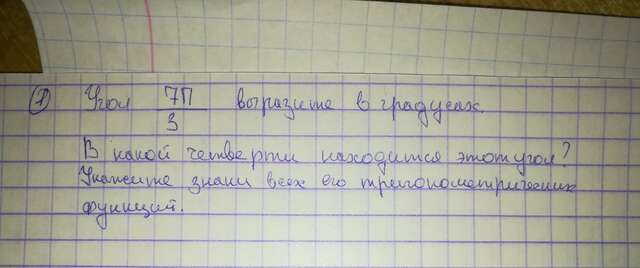 1) Угол 7П/3 выразите в градусах.
В какой четверти находится этот угол?
Укажите знаки всех его тригонометрических
функций.